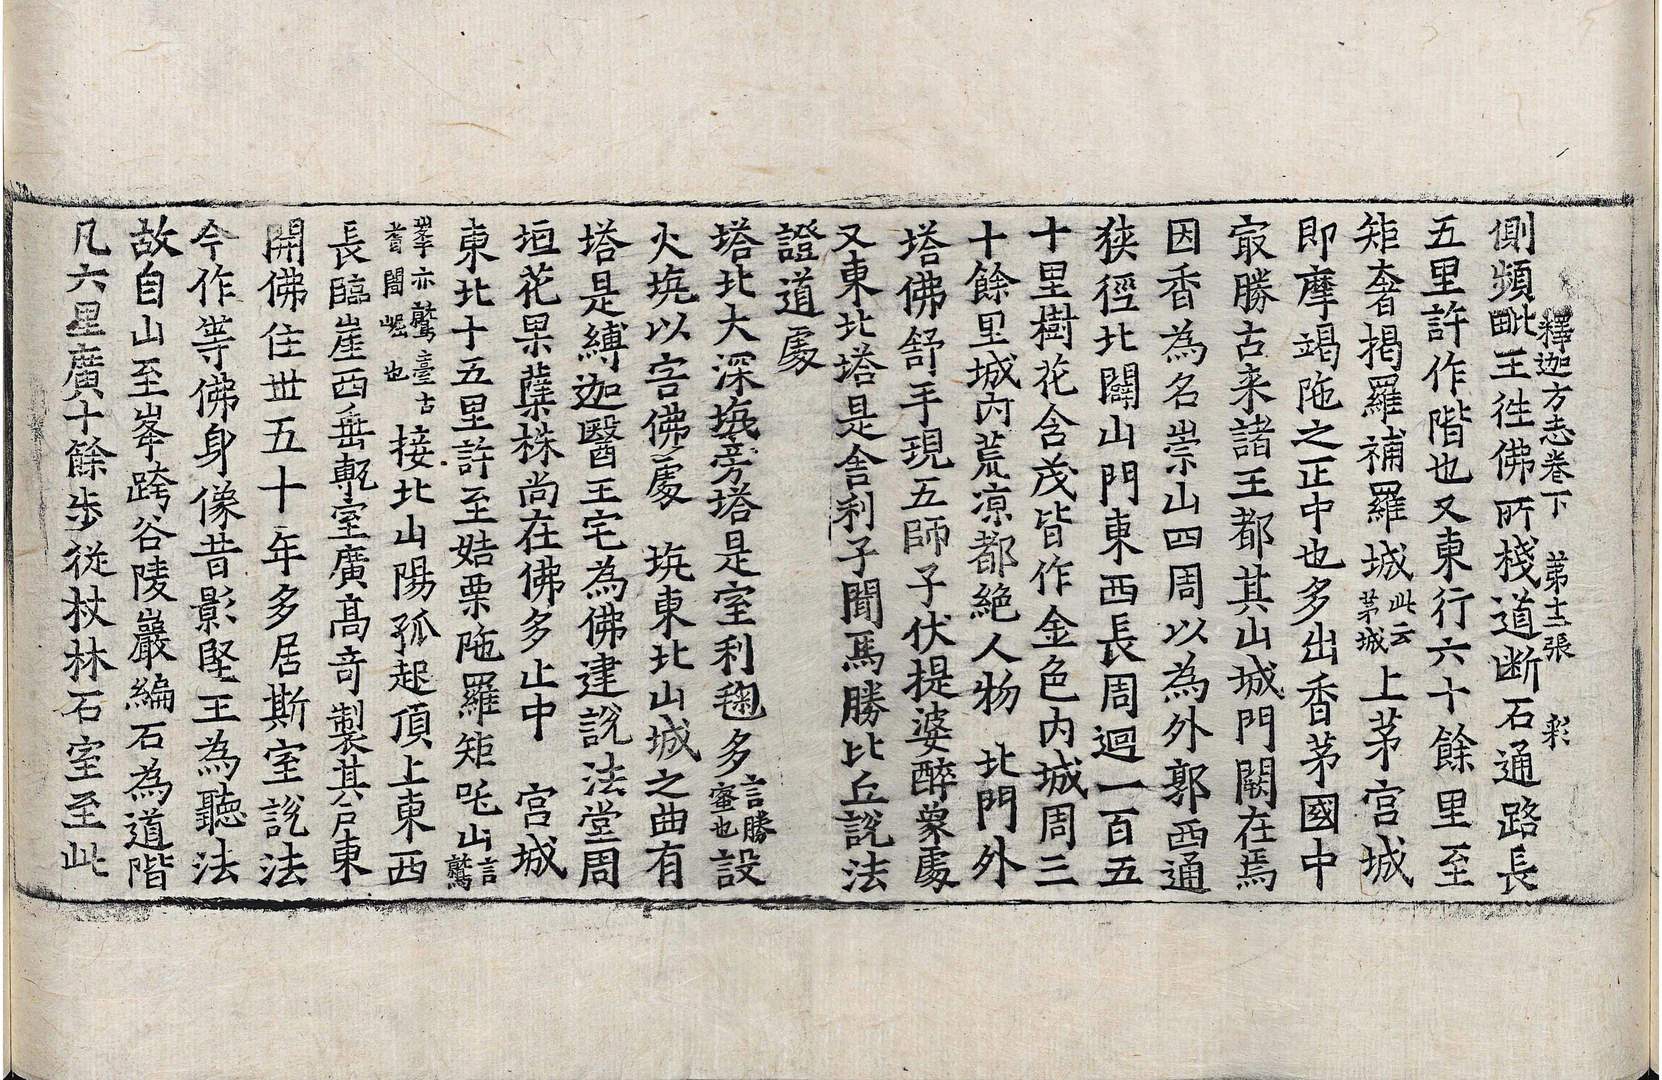 釋迦方志卷下 第十二張 彩
側頻毗王往佛所棧道断石通路長
五里許作階也又東行六十餘里至
矩奢揭羅補羅城此云茅城上茅宮城
即摩竭陁之正中也多出香茅國中
㝡勝古来諸王都其山城門闕在焉
因香為名崇山四周以為外郭西通
狭徑北闢山門東西長周迴一百五
十里樹花含茂皆作金色内城周三
十餘里城内荒凉都絶人物 北門外
塔佛舒手現五師子伏提婆醉象處
又東北塔是舎利子聞馬勝比丘說法
證道處
塔北大深坑旁塔是室利毱多言勝蜜也設
火坑以害佛處 坑東北山城之曲有
塔是縛迦醫王宅為佛建說法堂周
垣花果蘖株尚在佛多止中 宮城
東北十五里許至姞栗陁羅矩吒山言鷲
峯亦鷲臺古耆闍崛也接北山陽孤起頂上東西
長臨崖西垂甎室廣高奇製其戶東
開佛住世五十年多居斯室說法
今作等佛身像昔影堅王為聽法
故自山至峯跨谷陵巖編石為道階
凡六里廣十餘步從杖林石室至此